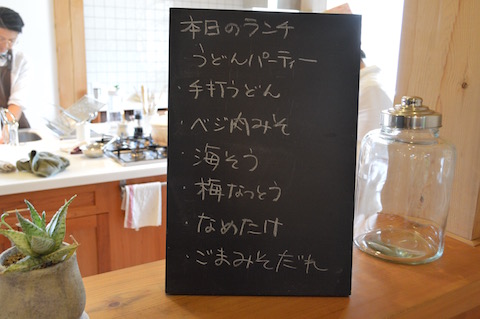 本日のランチ
うどんパーティー
・手打うどん
・ベジ肉みそ
・海そう
・梅なっとう
・なめたけ
・ごまみそだれ